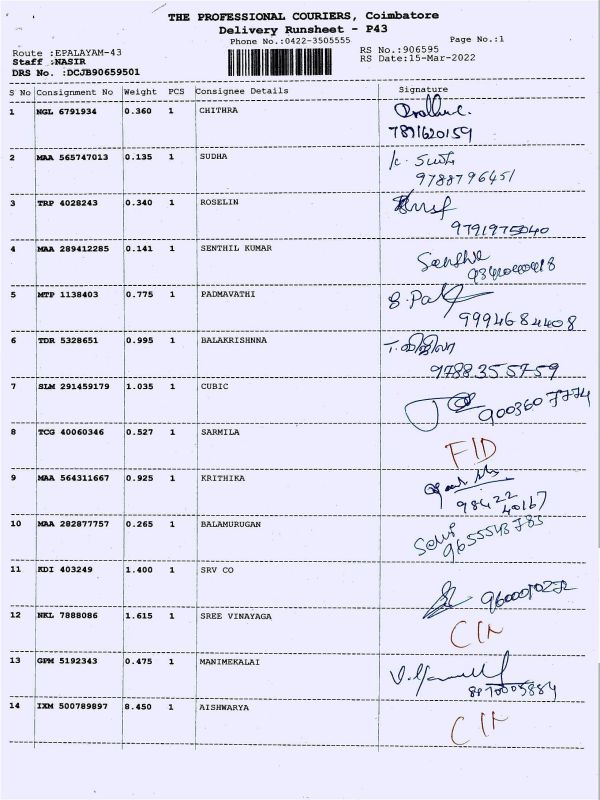 THE PROFESSIONAL COURIERS, Coimbatore
Delivery Runsheet - P43
Phone No.:0422-3505555 Page No.:1
Route :EPALAYAM-43 RS No.:906595
Staff :NASIR RS Date:15-Mar-2022
DRS No. :DCJB90659501
S No Consignment No Weight PCS Consignee Details Signature
1 NGL 6791934 0.360 1 CHITHRA
7871620159
2 MAA 565747013 0.135 1 SUDHA
9788796451
3 TRP 4028243 0.340 1 ROSELIN
9791975040
4 MAA 289412285 0.141 1 SENTHIL KUMAR
5 MTP 1138403 0.775 1 PADMAVATHI
9994684408
6 TDR 5328651 0.995 1 BALAKRISHNNA
9788355759
7 SLM 291459179 1.035 1 CUBIC
9003607774
8 TCG 40060346 0.527 1 SARMILA
F/D
9 MAA 564311667 0.925 1 KRITHIKA
98422
40167
10 MAA 282877757 0.265 1 BALAMURUGAN
9655548783
11 KDI 403249 1.400 1 SRV CO
12 NKL 7888086 1.615 1 SREE VINAYAGA
13 GPM 5192343 0.475 1 MANIMEKALAI
14 IXM 500789897 8.450 1 AISHWARYA